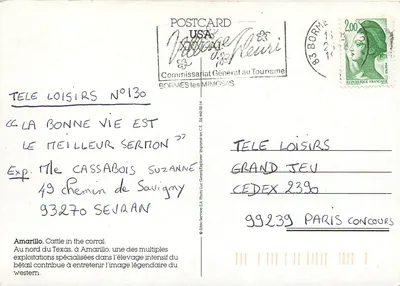 POSTCARD
USA
Village
fleuri
Commissariat Général au Tourisme
BORMES les MIMOSAS
83 BORME
2,00
TELE LOISIRS N°130
"LA BONNE VIE EST
LE MEILLEUR SERMON"
Exp. Mle CASSABOIS SUZANNE
49 chemin de Savigny
93270 SEVRAN
TELE LOISIRS
GRAND JEU
CEDEX 2390
99239 PARIS CONCOURS
Amarillo. Cattle in the corral.
Au nord du Texas, à Amarillo, une des multiples
exploitations spécialisées dans l'élevage intensif du
bétail contribue à entretenir l'image légendaire du
western.